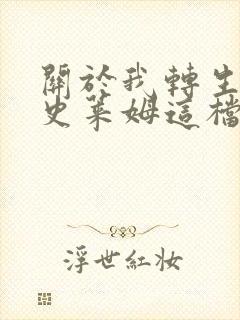 關於我轉生
史萊姆這檔
浮世紅妝